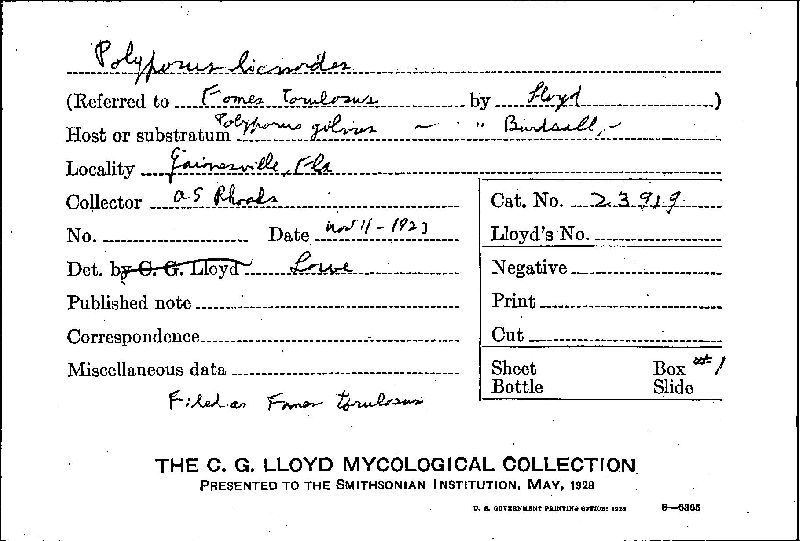 Polyporus licnoides
(Referred to Fomes torulosus by Lloyd)
Polyporus gilvus ~ " Burdsall, -
Host or substratum
Locality Gainesville, Fla
Collector A S Rhoads
Cat. No. 23919
No. Date Nov 11 - 1923
Lloyd's No.
Det. by C. G. Lloyd Lowe
Negative
Published note
Print
Correspondence
Cut
Miscellaneous data
Sheet Box #1
Bottle Slide
Filed as Fomes torulosus
THE C. G. LLOYD MYCOLOGICAL COLLECTION
PRESENTED TO THE SMITHSONIAN INSTITUTION, MAY, 1928
U. S. GOVERNMENT PRINTING OFFICE: 1928 8—6365